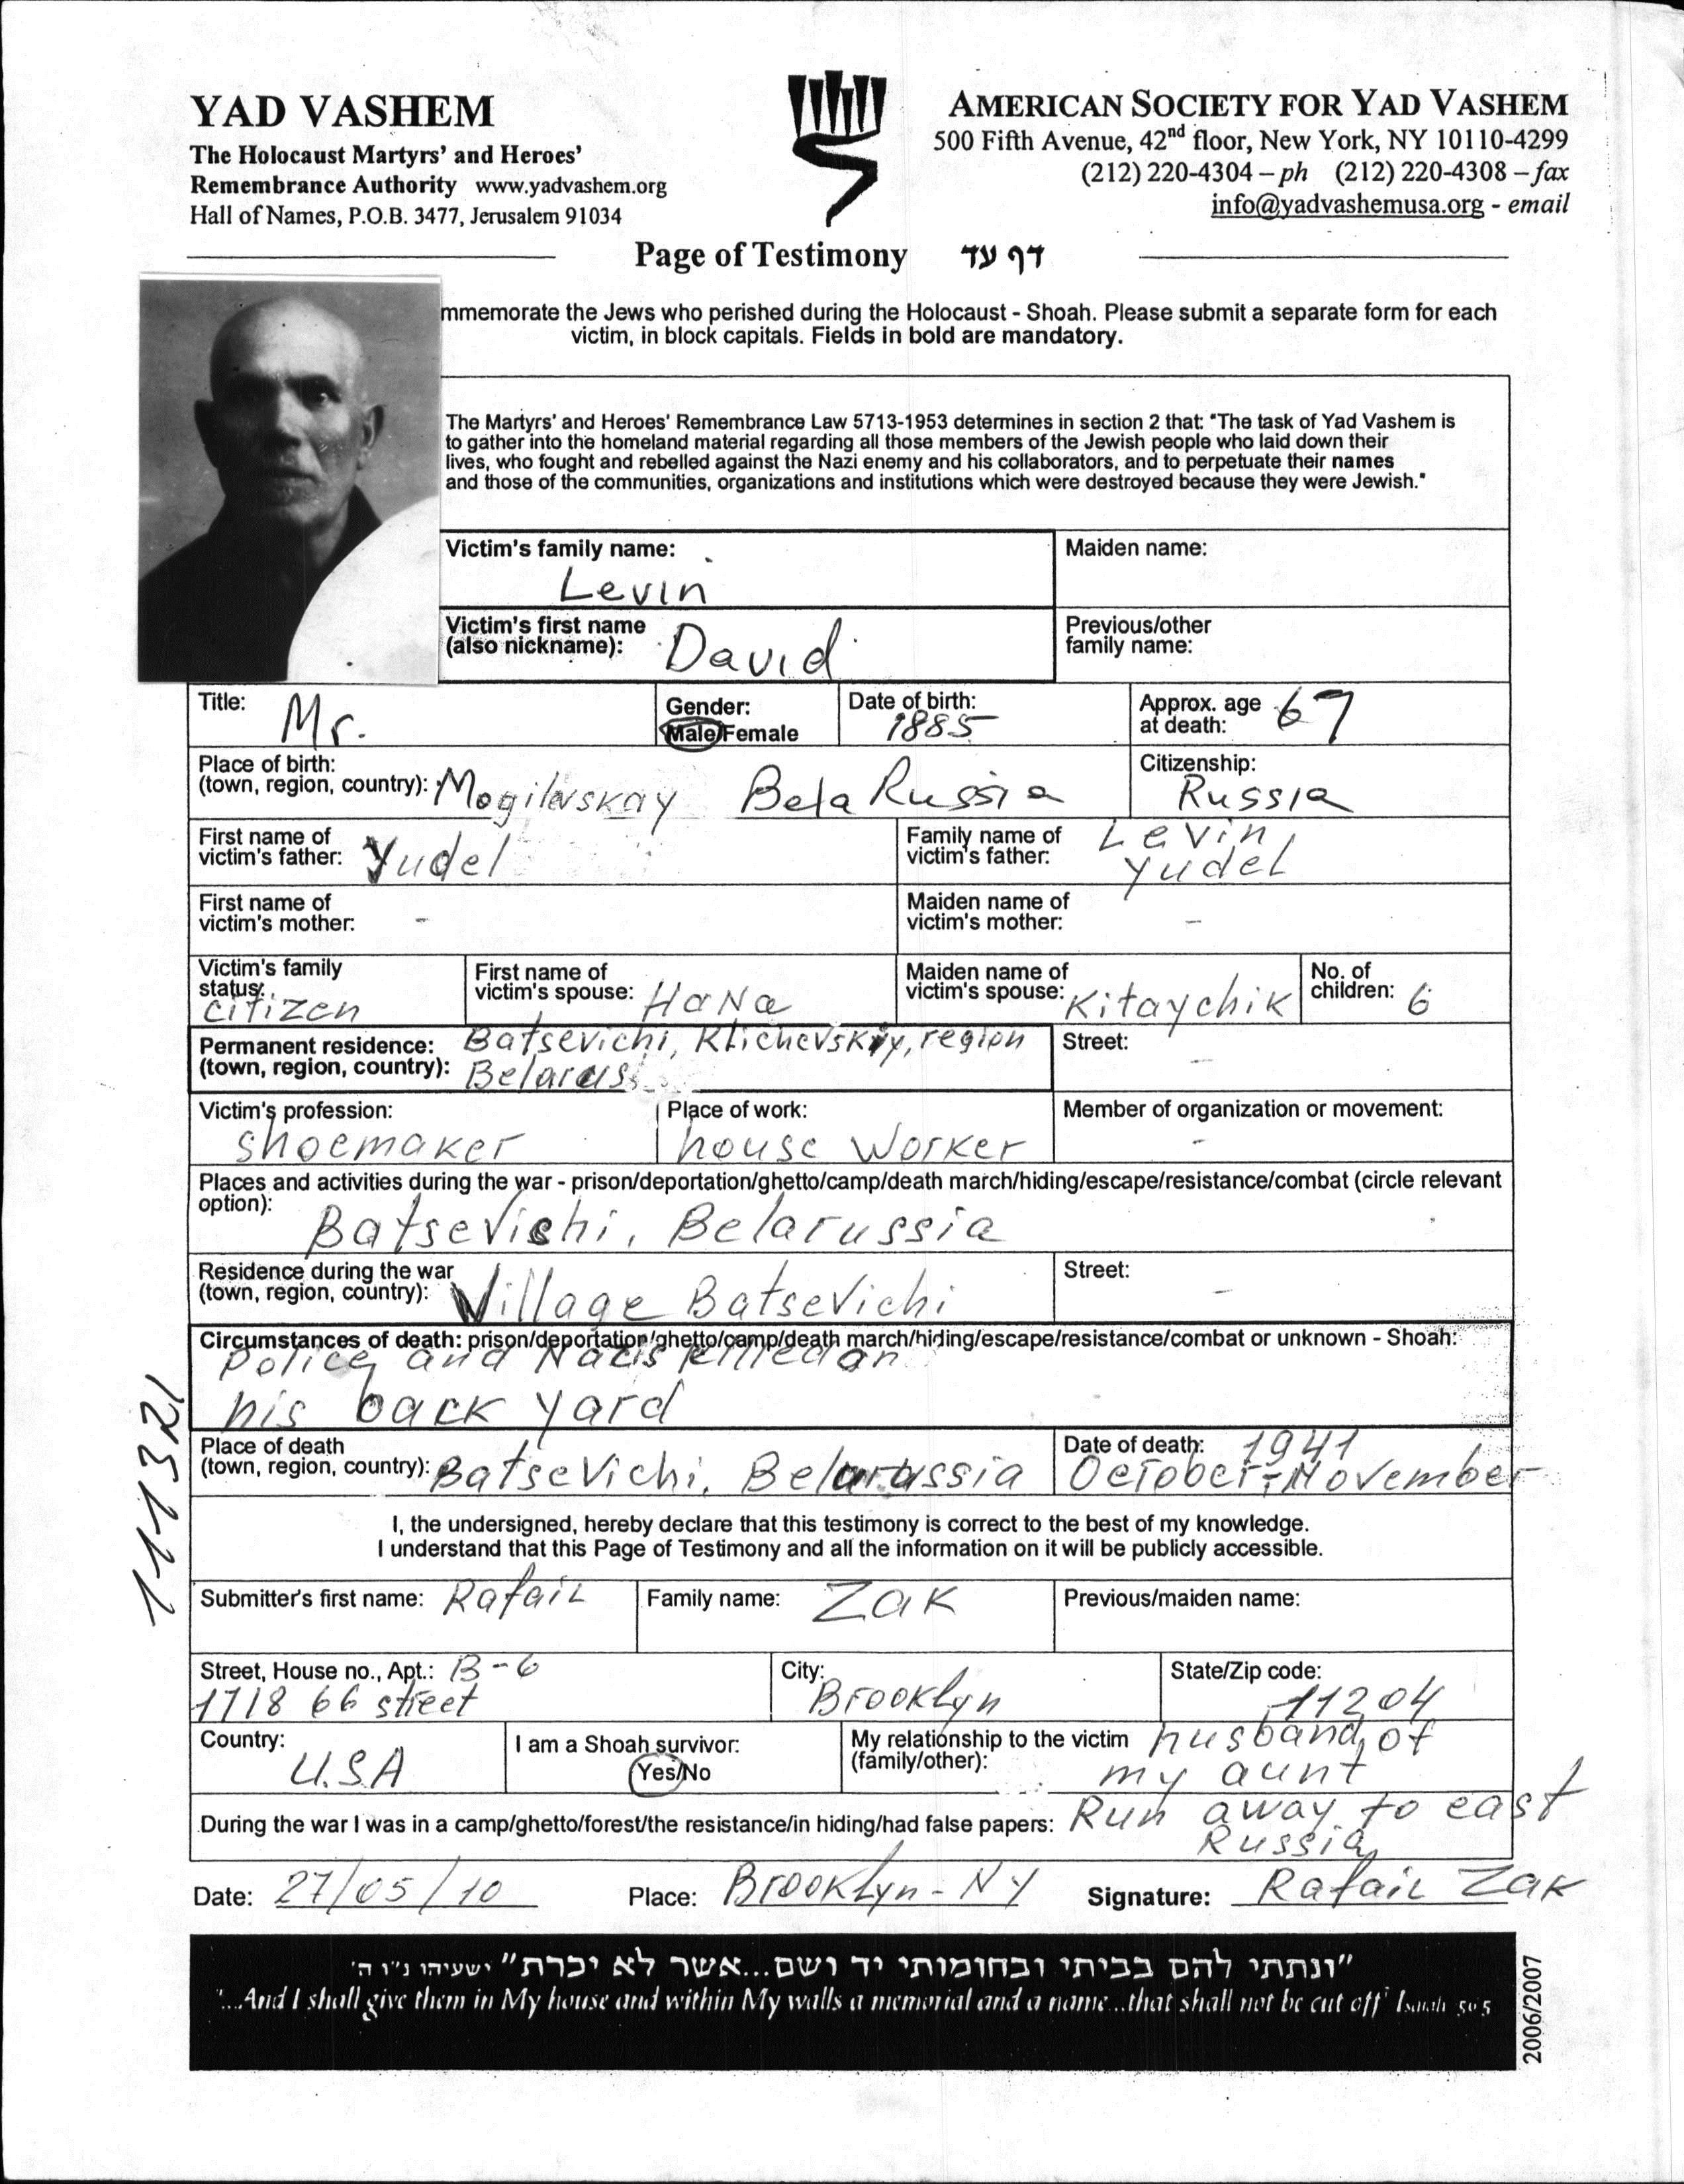 YAD VASHEM
The Holocaust Martyrs' and Heroes'
Remembrance Authority www.yadvashem.org
Hall of Names, P.O.B. 3477, Jerusalem 91034
AMERICAN SOCIETY FOR YAD VASHEM
500 Fifth Avenue, 42nd floor, New York, NY 10110-4299
(212) 220-4304 – ph (212) 220-4308 – fax
info@yadvashemusa.org - email
Page of Testimony דף עד
mmemorate the Jews who perished during the Holocaust - Shoah. Please submit a separate form for each
victim, in block capitals. Fields in bold are mandatory.
The Martyrs' and Heroes' Remembrance Law 5713-1953 determines in section 2 that: "The task of Yad Vashem is
to gather into the homeland material regarding all those members of the Jewish people who laid down their
lives, who fought and rebelled against the Nazi enemy and his collaborators, and to perpetuate their names
and those of the communities, organizations and institutions which were destroyed because they were Jewish."
Victim's family name:
Levin
Maiden name:
Victim's first name
(also nickname): David
Previous/other
family name:
Title: Mr.
Gender:
Male/Female
Date of birth:
1885
Approx. age
at death: 67
Place of birth:
(town, region, country): Mogilevskay Bela Russia
Citizenship:
Russia
First name of
victim's father: Yudel
Family name of
victim's father: Levin
Yudel
First name of
victim's mother: -
Maiden name of
victim's mother: -
Victim's family
status:
citizen
First name of
victim's spouse: HaNa
Maiden name of
victim's spouse: Kitaychik
No. of
children: 6
Permanent residence: Batsevichi, Klichevskiy, region
(town, region, country): Belarus
Street: -
Victim's profession:
shoemaker
Place of work:
house worker
Member of organization or movement:
-
Places and activities during the war - prison/deportation/ghetto/camp/death march/hiding/escape/resistance/combat (circle relevant
option): Batsevichi, Belarussia
Residence during the war
(town, region, country): Village Batsevichi
Street: -
Circumstances of death: prison/deportation/ghetto/camp/death march/hiding/escape/resistance/combat or unknown - Shoah:
Police and Nazis killed on
his back yard
Place of death
(town, region, country): Batsevichi, Belarussia
Date of death: 1941
October-November
I, the undersigned, hereby declare that this testimony is correct to the best of my knowledge.
I understand that this Page of Testimony and all the information on it will be publicly accessible.
Submitter's first name: Rafail
Family name: Zak
Previous/maiden name:
Street, House no., Apt.: B-6
1718 66 street
City:
Brooklyn
State/Zip code:
11204
Country:
U.S.A
I am a Shoah survivor:
Yes/No
My relationship to the victim husband of
(family/other): my aunt
During the war I was in a camp/ghetto/forest/the resistance/in hiding/had false papers: Run away to east
Russia
Date: 27/05/10
Place: Brooklyn-NY
Signature: Rafail Zak
"ונתתי להם בביתי ובחומותי יד ושם...אשר לא יכרת" ישעיהו נ"ו ה'
"...And I shall give them in My house and within My walls a memorial and a name...that shall not be cut off" Isaiah 56:5
2006/2007
111321